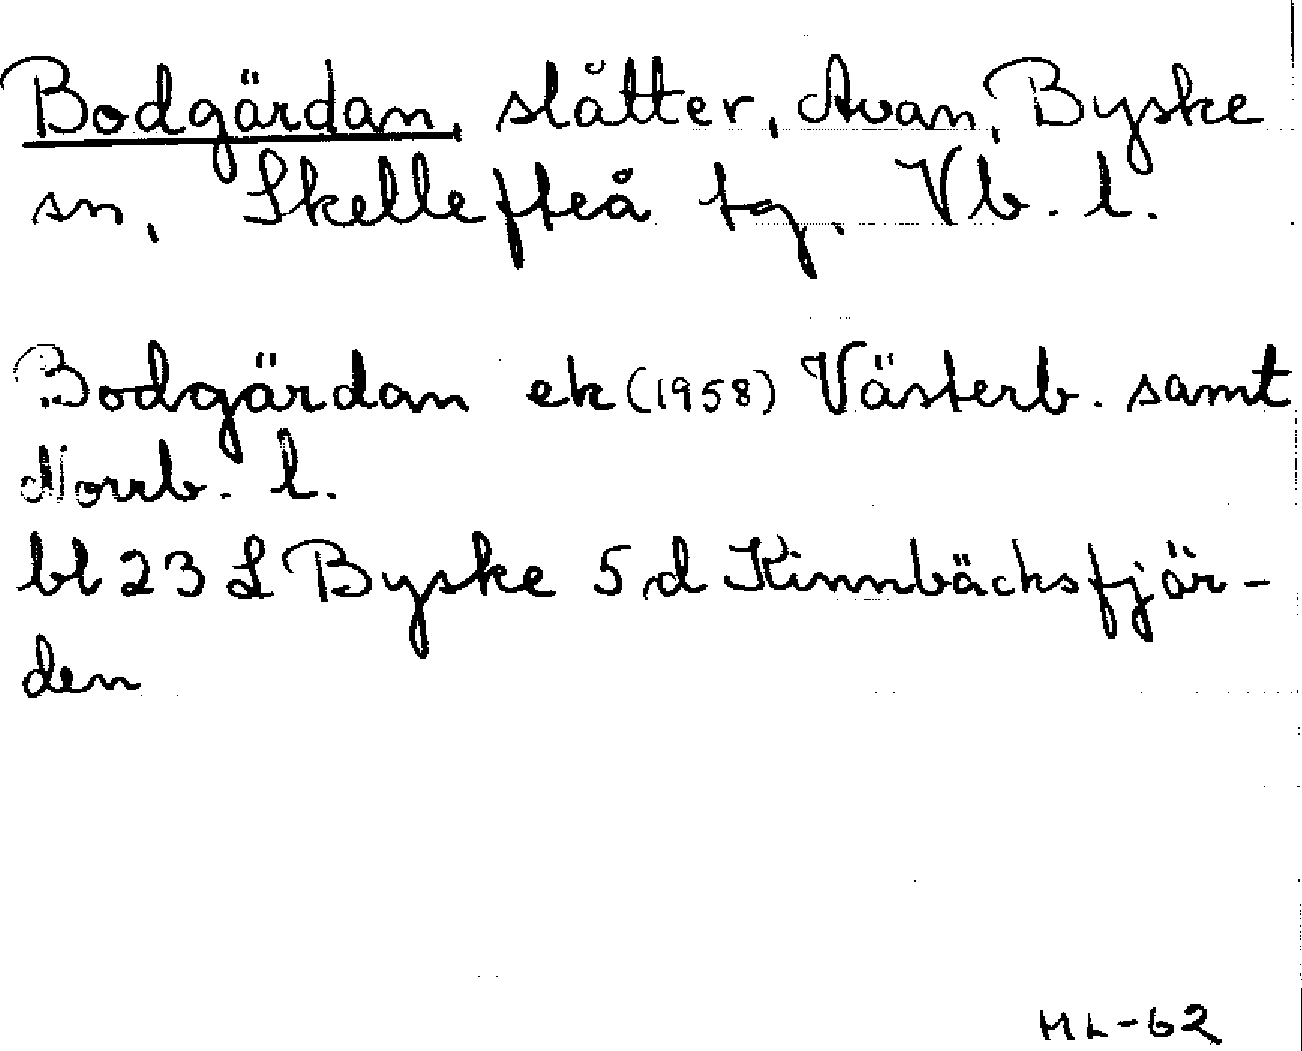 Bodgärdan, slåtter, Avan, Byske
sn, Skellefteå tg. Vb. l.
Bodgärdan ek (1958) Västerb. samt
Norrb. l.
bl 23 L Byske 5 d Kinnbäcksfjär-
den
ML-62